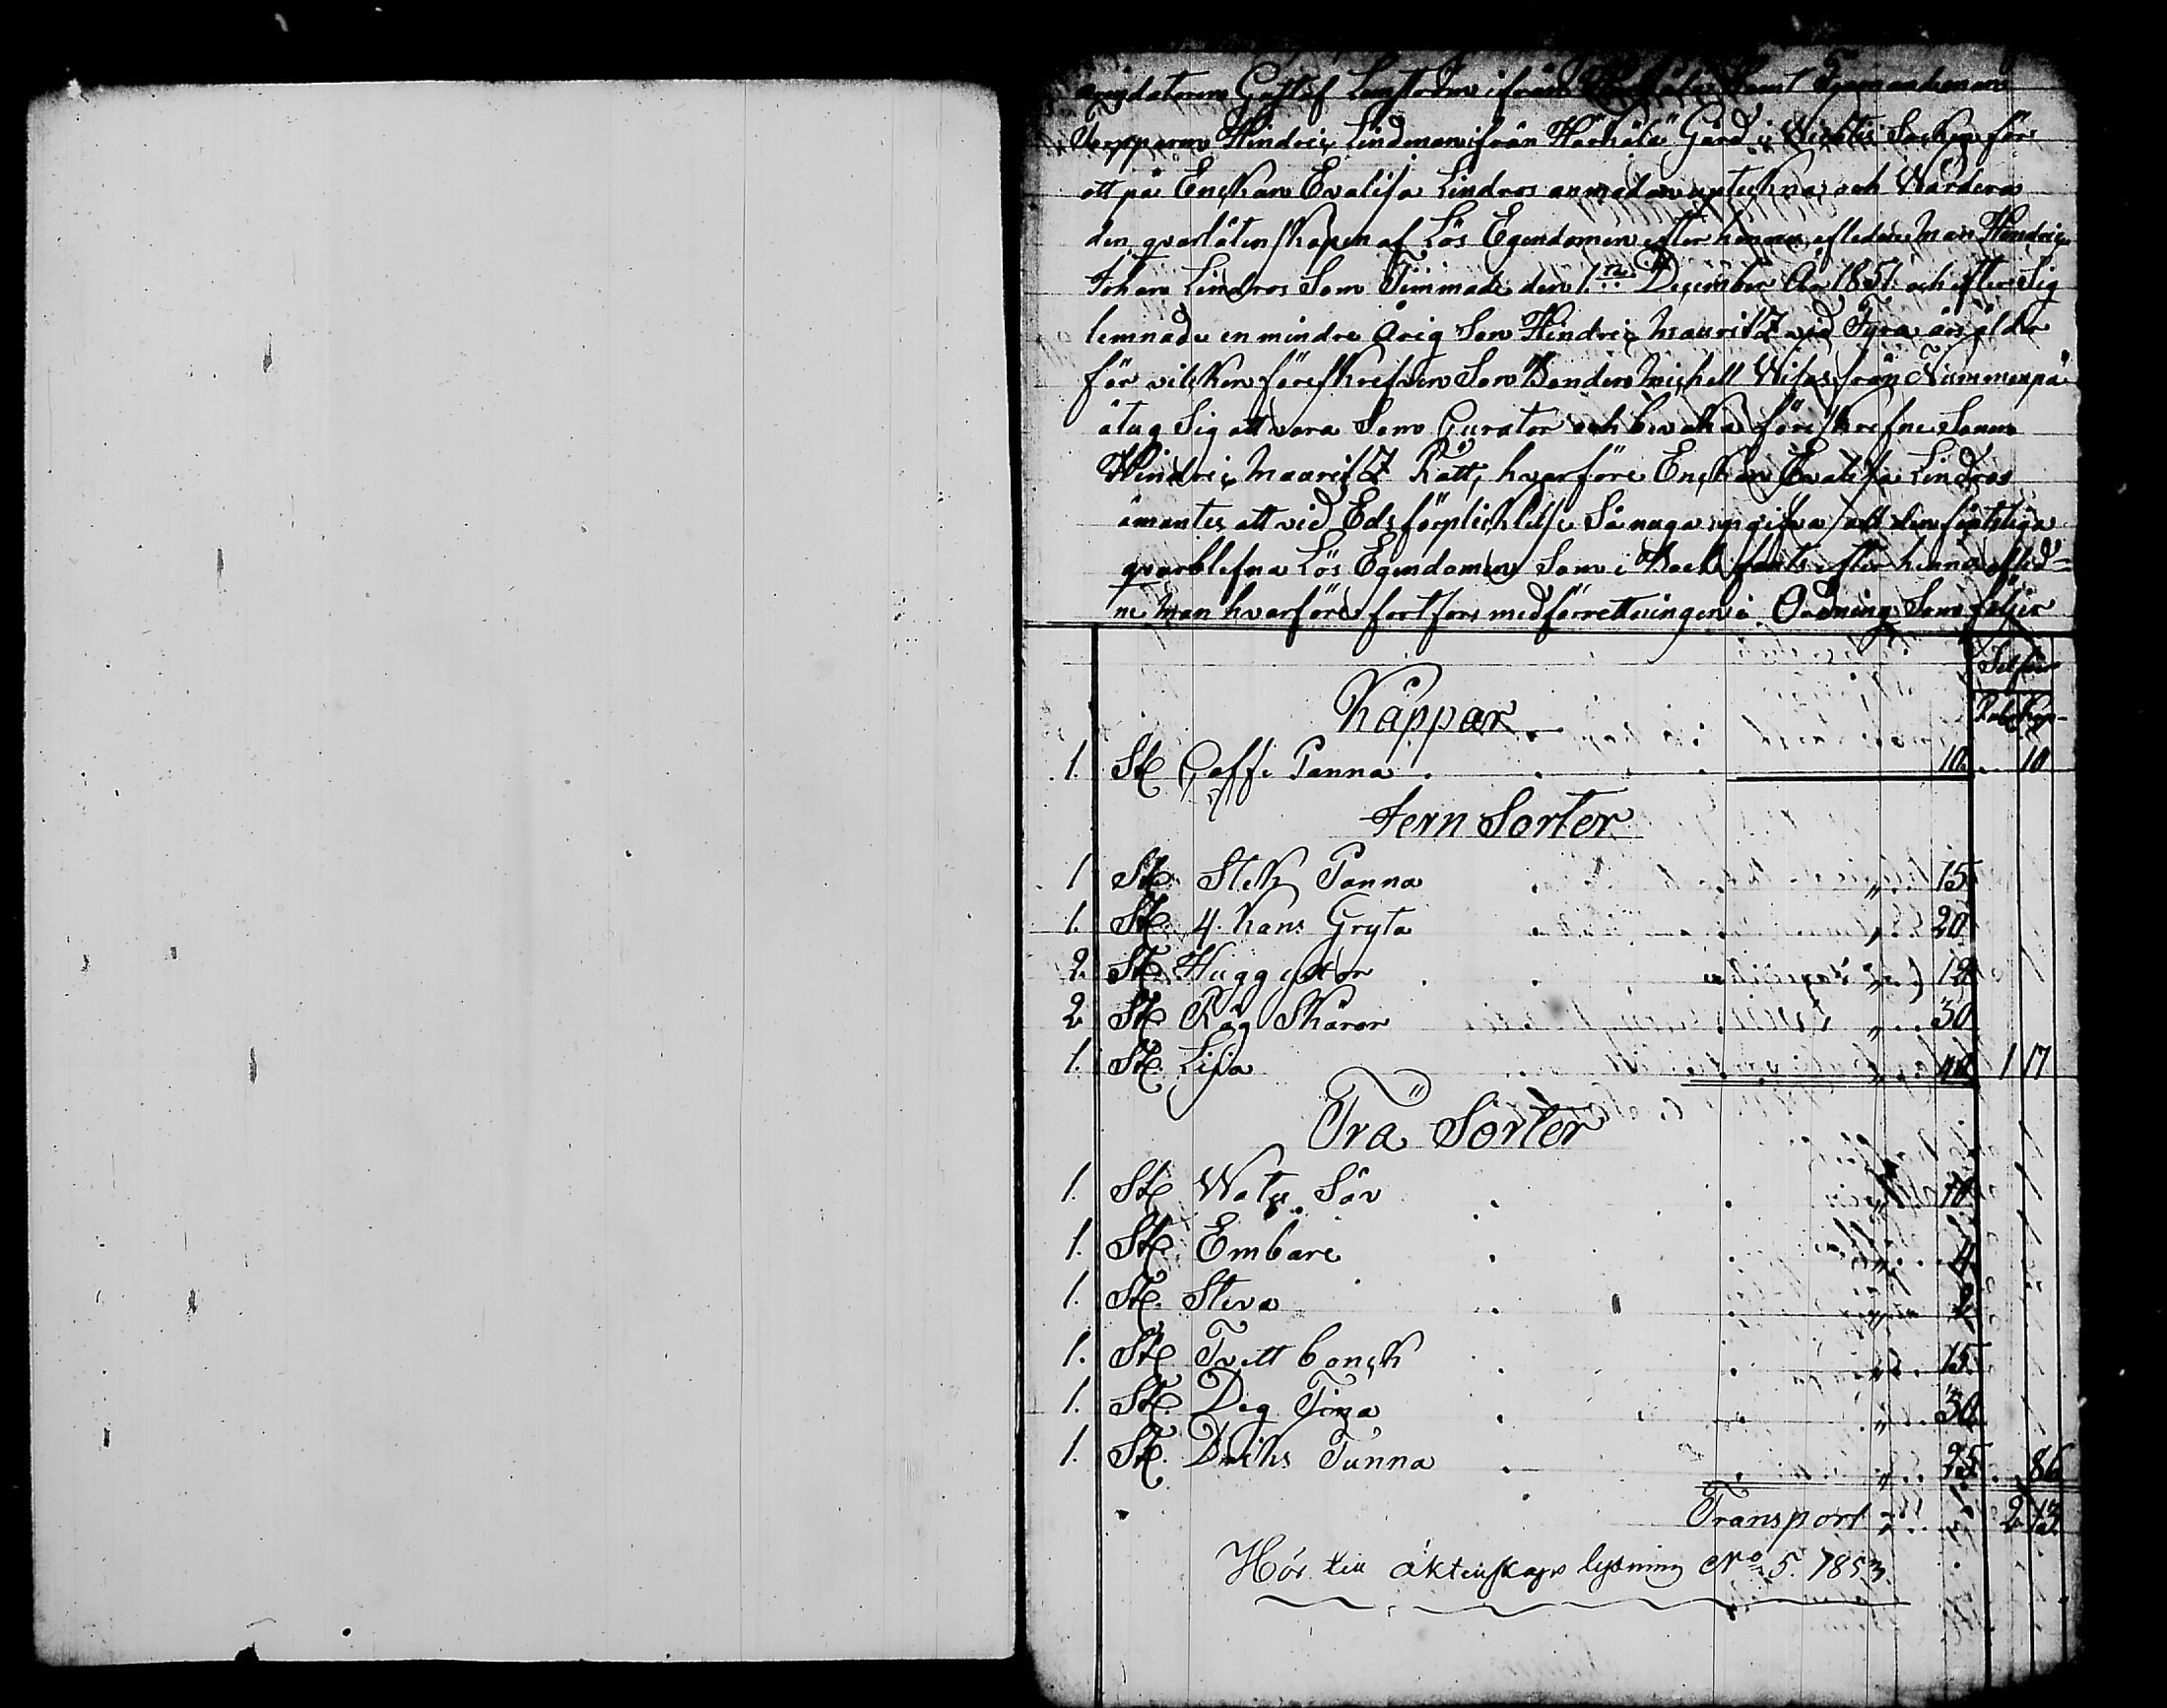 Gustaf Lingström ifrån samt
Torpparen Hindric Lindman ifrån Härkälä Gård i Wichtis Sockn för
att på Enckan Evalisa Lindros anmodan uptekna och Wärdera
den qvarlåtenskapen af Lös Egendomen efter hennes afledne Man Hindric
Johan Lindros Som Timmade den 1:ta December År 1851 och efter Sig
lemnade en mindre Årig Son Hindric Mauritz vid Fyra års ålder
för vilcken föreskrefven Son Bonden Michell Wisas från Nummenpä
åtug Sig att vara Som Curator och bevaka föreskrefne Sonens
Hindric Mauritz Rätt, hvarföre Enckan Evalisa Lindros
åmantes att vid Eds förplichtelse Sånoga upgifva allt den
qvarblefna Lös Egendomen Som i Boet fants efter hennes afled=
ne Man hvarföre fortfors med förrettningen i Ordning Som följer
Silfver
Rub Kop
Kåppar
1. St Caffe Panna 10 10
Jern Sorter
1 St Stek Panna " 15
1. St. 4. Kans Gryta " 20
2. St. Hugg yxor " 12
2 St Råg Skäror " 30
1. St. Lija " 40 1 17
Trä Sorter
1. St Watu Såv " 10
1. St. Embare " 4
1. St. Steva " 2
1. St Tvett bonck " 15
1. St. Deg Tina " 30
1. St. Dricks Tunna " 25 86
Transport 2 13
Hör till äktenskaps lysning No 5. 1853.